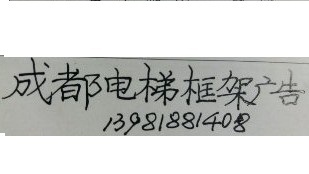 成都电梯框架广告
13981881408